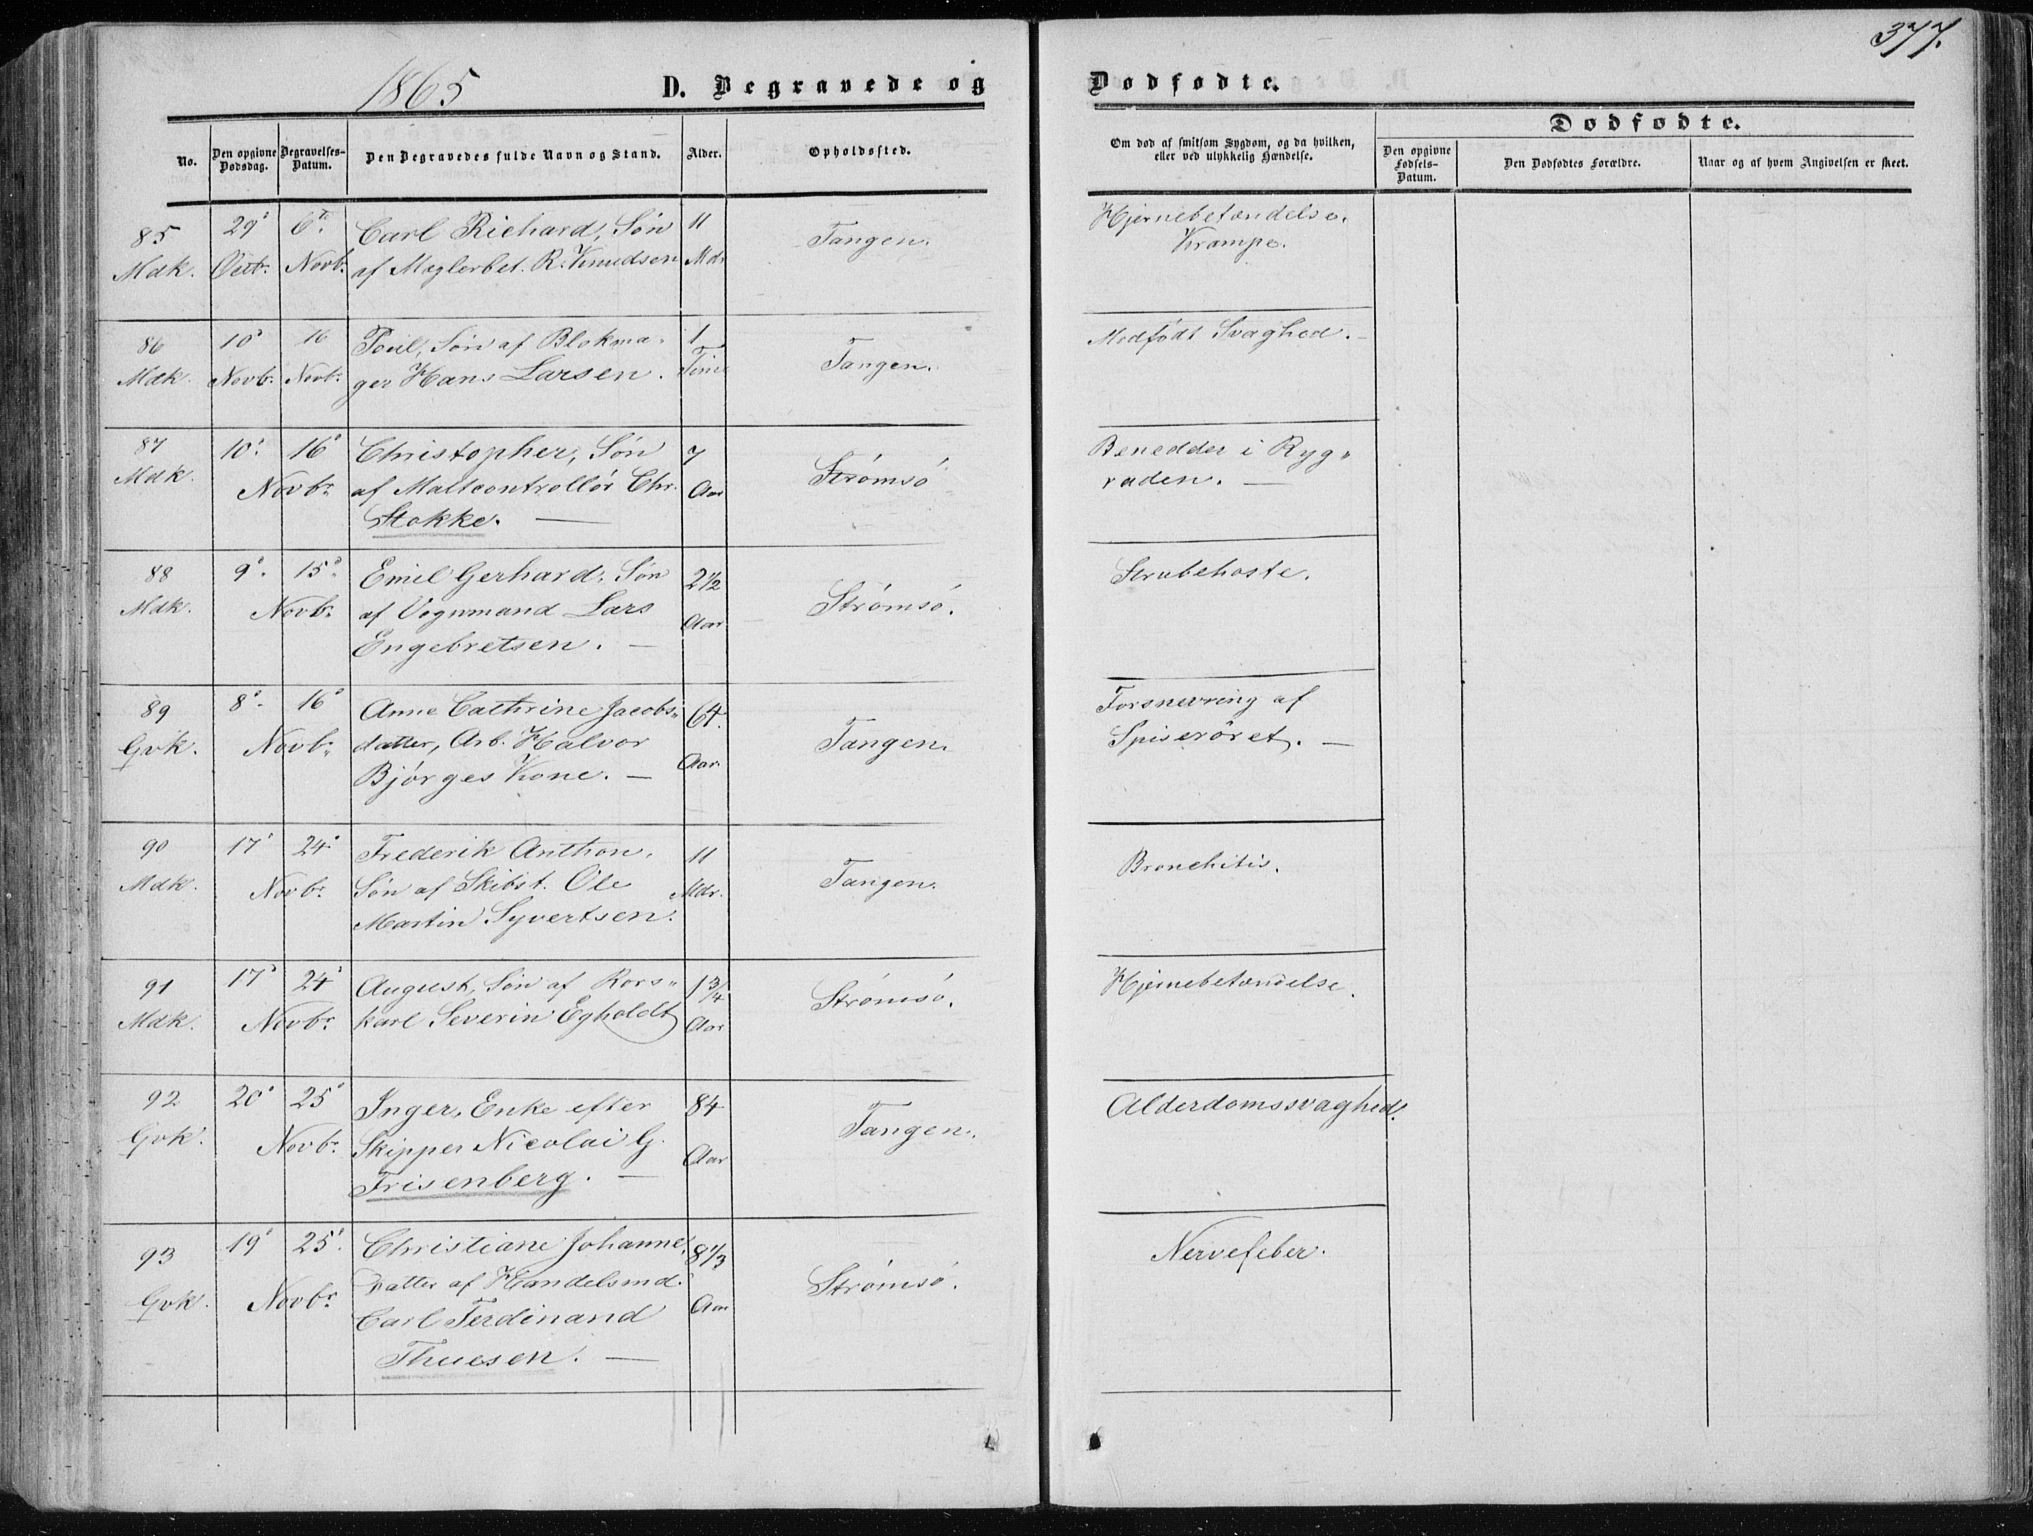 377.
1865
D. Begravede og Dødfødte.
Dødfødte.
No.
Den opgivne Dødsdag.
Begravelses-Datum.
Den Begravedes fulde Navn og Stand.
Alder.
Opholdssted.
Om død af smitsom Sygdom, og da hvilken, eller ved ulykkelig Hændelse.
Den opgivne Fødsels-Datum.
Den Dødfødtes Forældre.
Naar og af hvem Angivelsen er skeet.
85 29 6 Carl Richard, Søn 11 Tangen. Hjernebetændelse.
Mdk. Octb. Novb. af Mæglerbet. R. Knudsen Mdr Krampe.
86 10 16 Poul, Søn af Blokma- 1 Tangen. Medfødt Svaghed.
Mdk. Novb. Novb. ger Hans Larsen. Time
87 10 16 Christopher, Søn 7 Strømsø Benedder i Ryg-
Mdk. Novbr af Maltcontrollør Chr. Aar raden. —
Stokke. —
88 9 15 Emil Gerhard, Søn 2½ Strømsø. Strubehoste.
Mdk. Novbr af Vognmand Lars Aar
Engebretsen. —
89 8 16 Anne Cathrine Jacobs- 64. Tangen. Forsnevring af
Gvk. Novbr datter, Arb. Halvor Aar Spiserøret. —
Bjørges Kone. —
90 17 24 Frederik Anthon, 11 Tangen. Bronchitis.
Mdk. Novbr Søn af Skibst. Ole Mdr.
Martin Syvertsen.
91 17 24 August, Søn af Rors- 1¾ Strømsø. Hjernebetændelse.
Mdk. Novbr karl Severin Egholdt Aar
92 20 25 Inger, Enke efter 84 Tangen. Alderdomssvaghed.
Gvk. Novbr Skipper Nicolai G. Aar
Frisenberg. —
93 19 25 Christiane Johanne, 8⅓ Strømsø. Nervefeber.
Gvk. Novbr Datter af Handelsmd. Aar
Carl Ferdinand
Thuesen. —